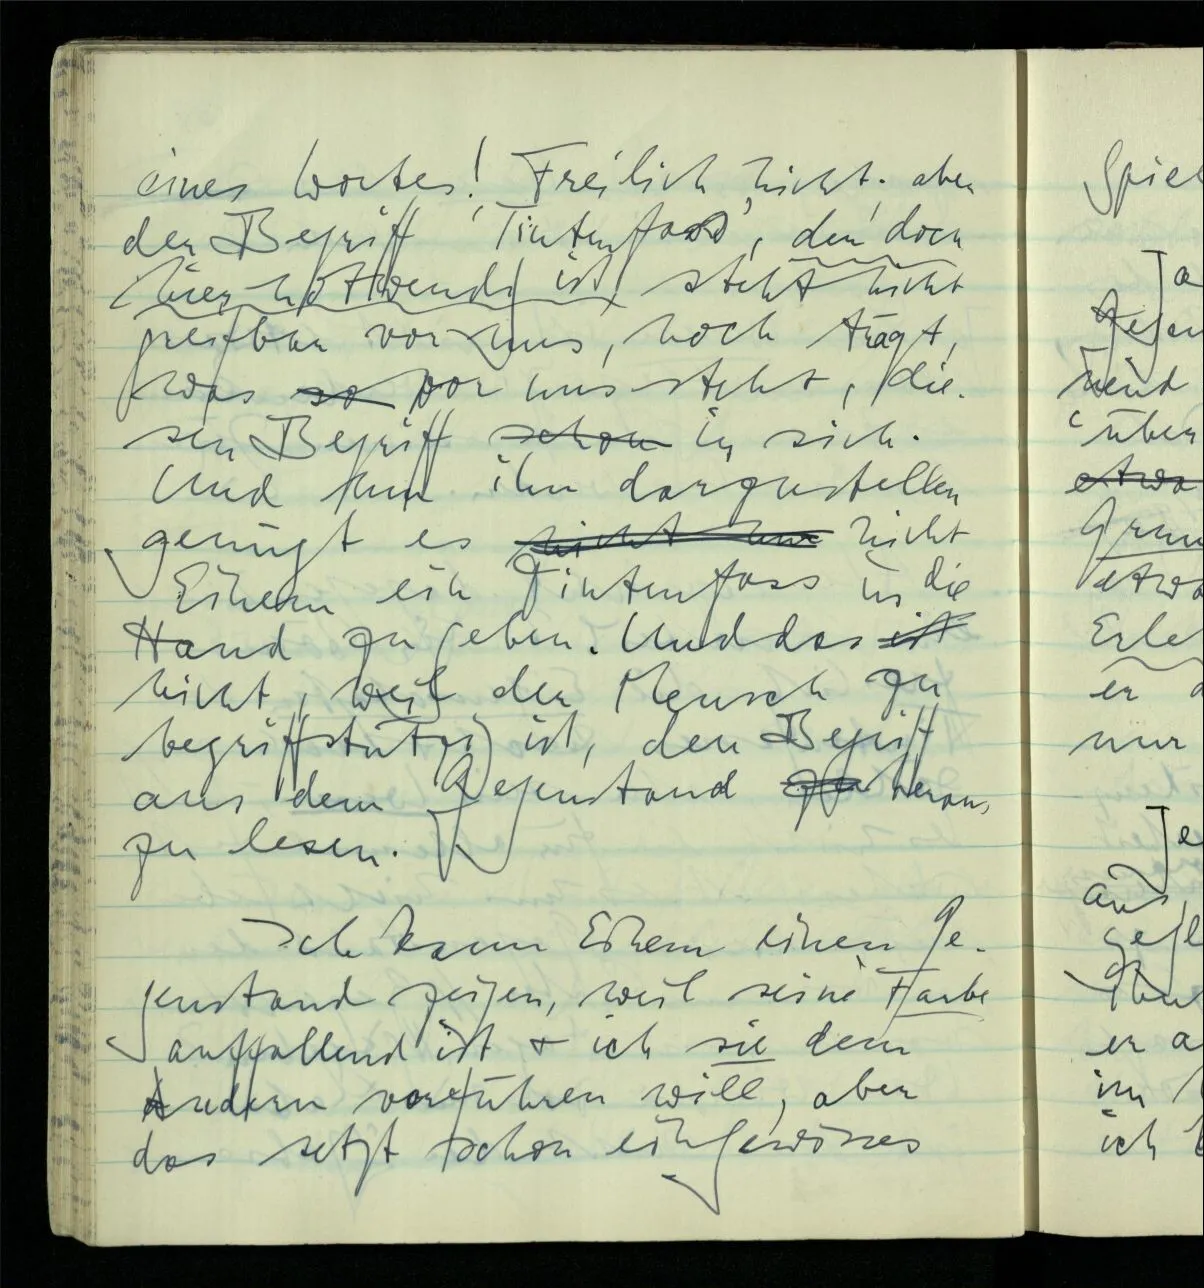 eines Wortes! Freilich nicht. aber
der Begriff 'Tintenfass', der doch
hier notwendig ist, steht nicht
greifbar vor uns, noch trägt,
was so vor uns steht, die-
sen Begriff schon in sich.
Und um ihn darzustellen
genügt es nicht nur nicht
Einem ein Tintenfass in die
Hand zu geben. Und das ist
nicht, weil der Mensch zu
begriffstützig ist, den Begriff
aus dem Gegenstand heraus
zu lesen.
Ich kann Einem einen Ge-
genstand zeigen, weil seine Farbe
auffallend ist + ich sie dem
Andern vorführen will, aber
das setzt schon ein gewisses
Spiel
Ja
Gegen
über
etwa
etwa
Erle
er
nur
auf
er a
im
ich